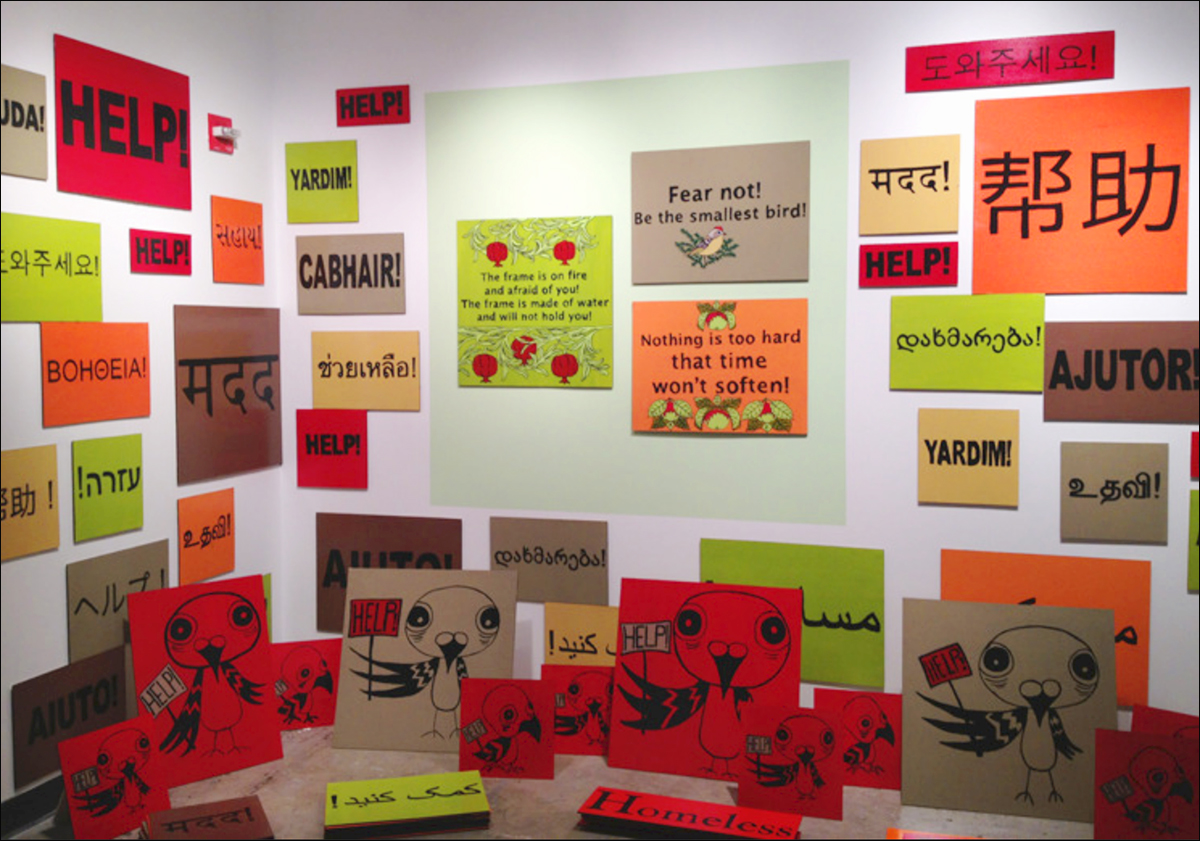 UDA!
HELP!
도와주세요!
HELP!
સહાય!
ΒΟΗΘΕΙΑ!
मदद
帮助！
עזרה!
உதவி!
ヘルプ！
AIUTO!
HELP!
YARDIM!
CABHAIR!
ช่วยเหลือ!
HELP!
AIUTO!
დახმარება!
The frame is on fire
and afraid of you!
The frame is made of water
and will not hold you!
Fear not!
Be the smallest bird!
Nothing is too hard
that time
won't soften!
도와주세요!
मदद!
帮助
HELP!
დახმარება!
AJUTOR!
YARDIM!
உதவி!
کنید!
HELP!
HELP!
HELP!
HELP!
HELP!
HELP!
HELP!
मदद!
کمک کنید!
Homeless